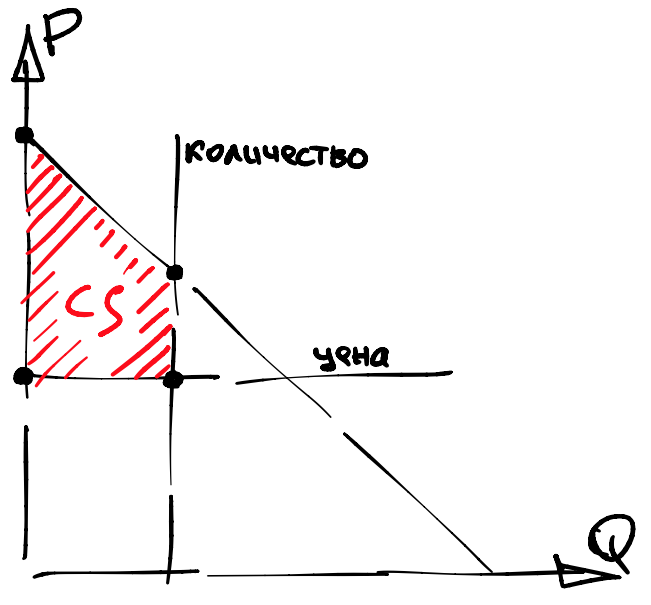 P
количество
CS
цена
Q